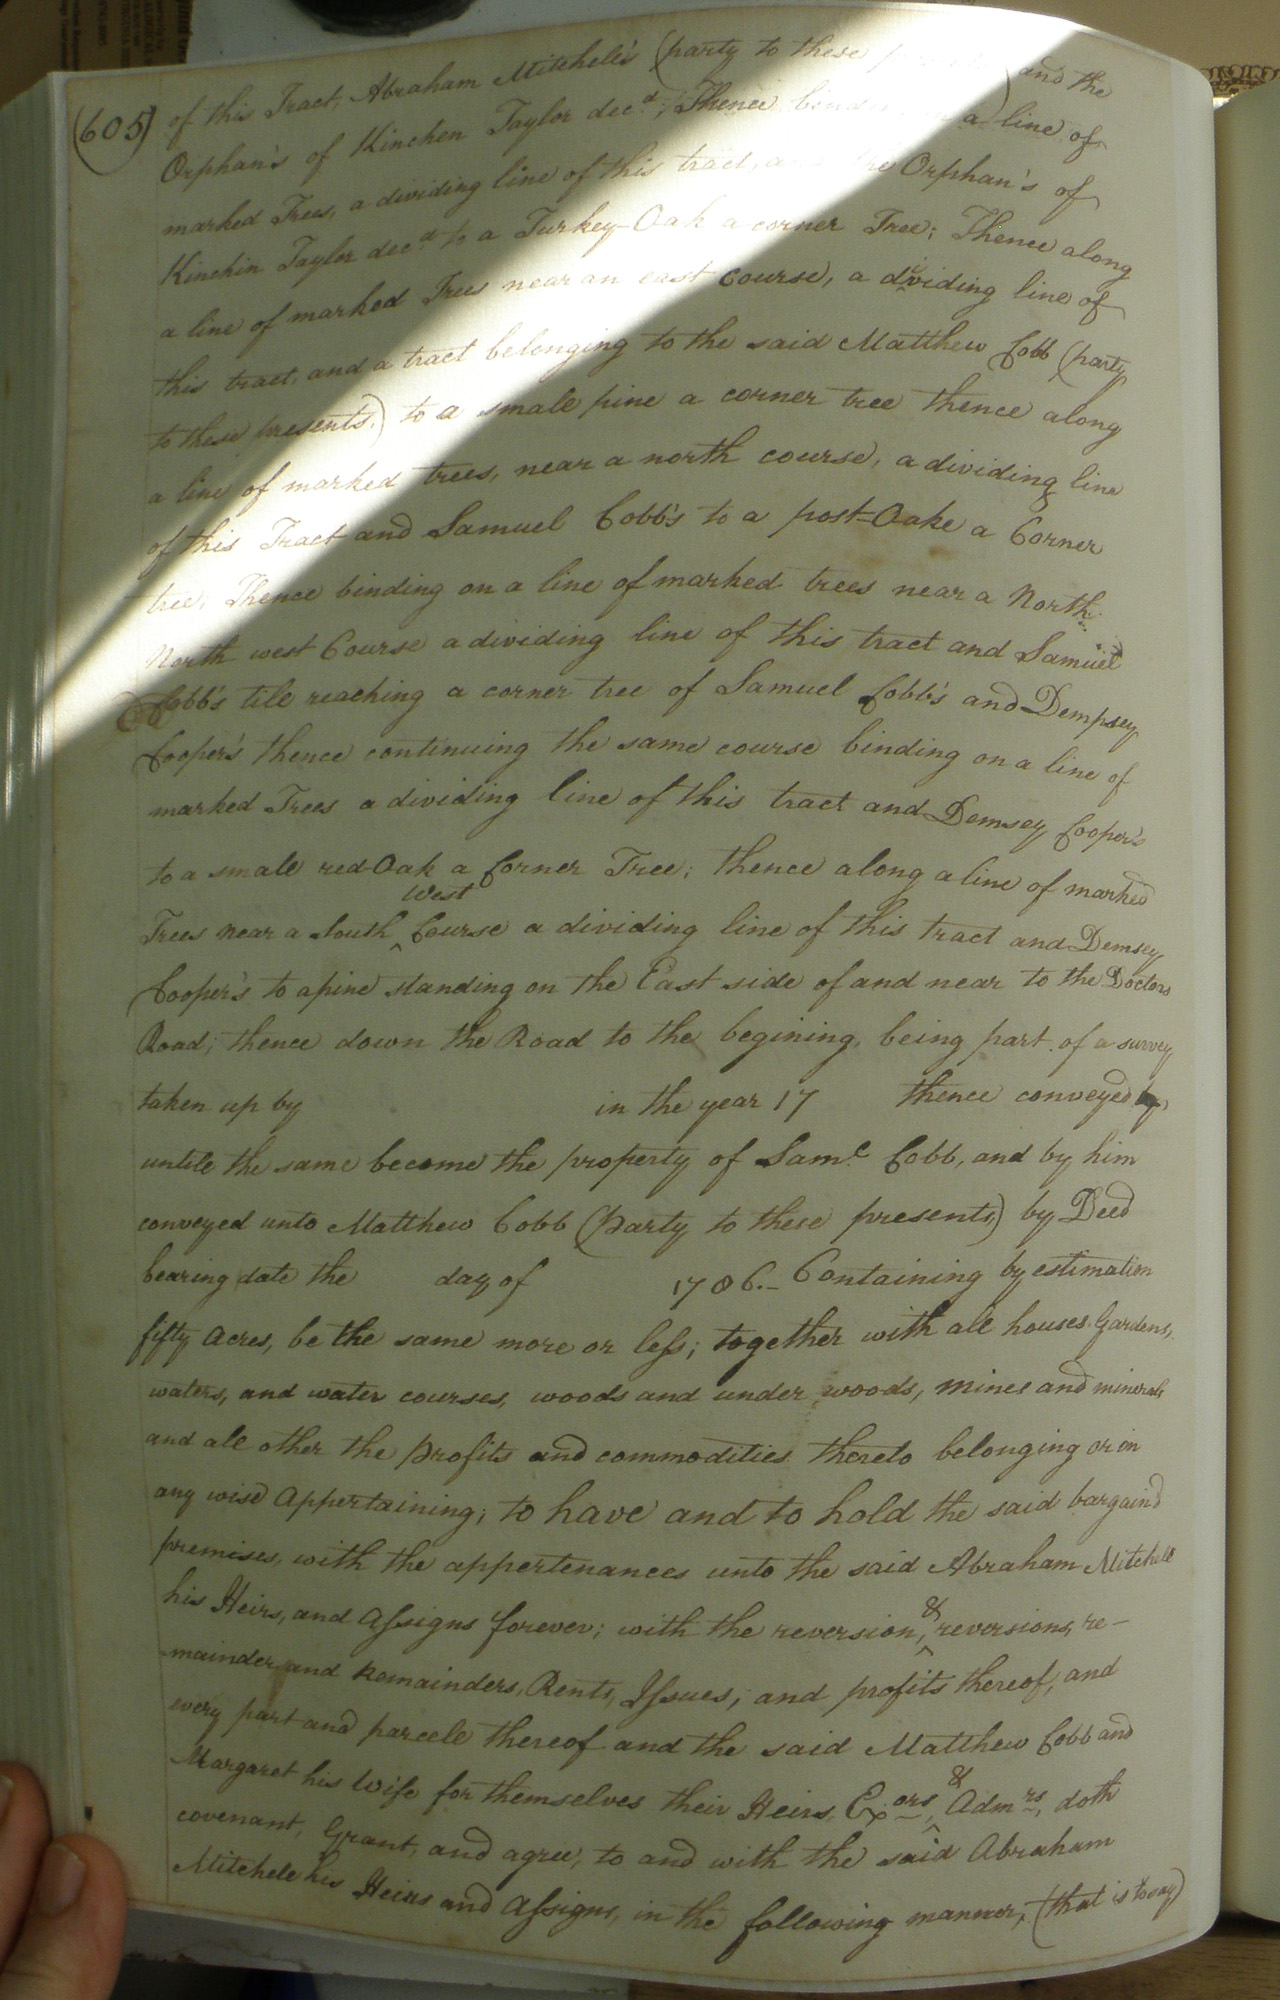 (605) of this Tract, Abraham Mitchele's (party to these and the
Orphan's of Kinchen Taylor decd; Thence a line of
marked Trees, a dividing line of this tract, and the Orphan's of
Kinchin Taylor decd to a Turkey-Oak a corner Tree; Thence along
a line of marked Trees near an east Course, a dividing line of
this tract, and a tract belonging to the said Matthew Cobb (party
to these presents,) to a smale pine a corner tree thence along
a line of marked trees, near a north course, a dividing line
of this Tract and Samuel Cobb's to a post=Oake a Corner
tree, Thence binding on a line of marked trees near a North
North west Course a dividing line of this tract and Samuel
Cobb's tile reaching a corner tree of Samuel Cobb's and Dempsey
Cooper's thence continuing the same course binding on a line of
marked Trees a dividing line of this tract and Demsey Cooper's
to a smale red-Oak a Corner Tree; thence along a line of marked
Trees near a South West Course a dividing line of this tract and Demsey
Cooper's to a pine standing on the East side of and near to the Doctors
Road; thence down the Road to the begining, being part of a survey
taken up by in the year 17 thence conveyed by
untile the same become the property of Saml Cobb, and by him
conveyed unto Matthew Cobb (party to these presents,) by Deed
bearing date the day of 1786.- Containing by estimation
fifty acres, be the same more or less; together with ale houses Gardens,
waters, and water courses, woods and under woods, mines and minerals
and ale other the profits and commodities thereto belonging or in
any wise Appertaining; to have and to hold the said bargaind
premises, with the appertenances unto the said Abraham Mitchele
his Heirs, and Assigns forever; with the reversion, & reversions, re-
mainder and Remainders, Rents, Issues, and profits thereof, and
every part and parcele thereof and the said Matthew Cobb and
Margaret his Wife for themselves their Heirs, Exors, & Admrs, doth
covenant, Grant, and agree, to and with the said Abraham
Mitchele his Heirs and Assigns, in the following manner, (that is to say)